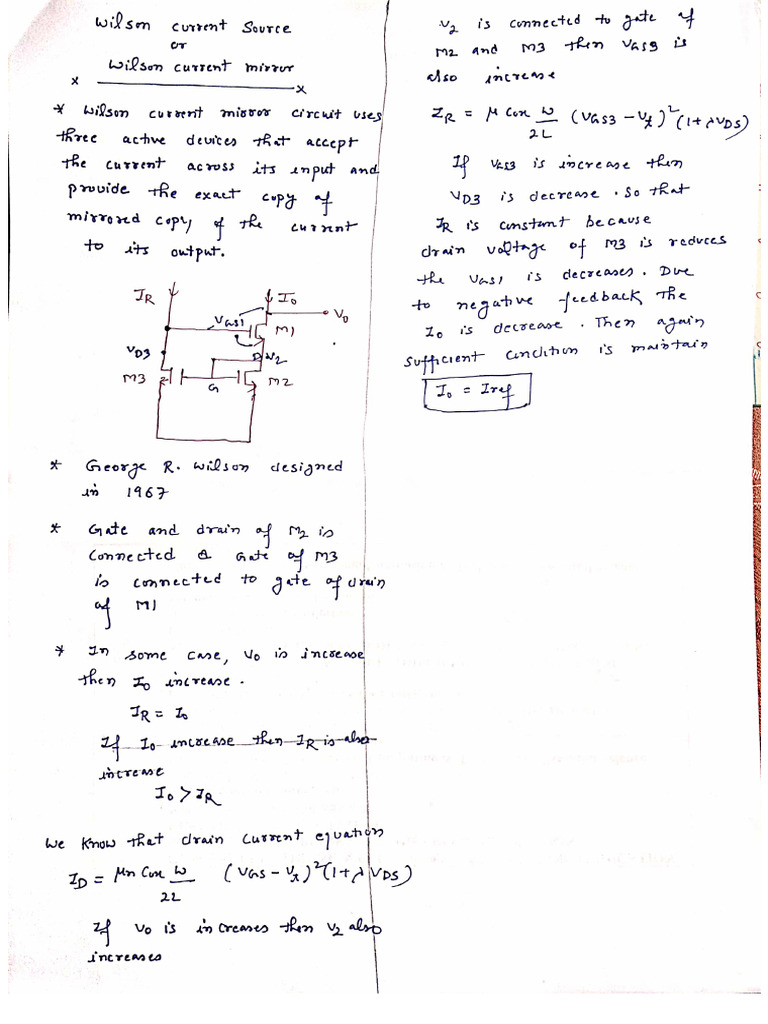 Wilson current Source
or
Wilson current mirror
x ——————— x
* Wilson current mirror circuit uses
three active devices that accept
the current across its input and
provide the exact copy of
mirrored copy of the current
to its output.
IR
I0
V0
VGS1
M1
VD3
D
V2
M3
G
M2
* George R. Wilson designed
in 1967
* Gate and drain of M2 is
connected & Gate of M3
is connected to gate of drain
of M1
* In some case, V0 is increase
then I0 increase.
IR = I0
If I0 increase then IR is also
increase
I0 > IR
We know that drain current equation
ID = μn Cox W/2L (VGS - Vt)²(1+λVDS)
If V0 is increases then V2 also
increases
V2 is connected to gate of
M2 and M3 then VGS3 is
also increase
IR = μ Cox W/2L (VGS3 - Vt)²(1+λVDS)
If VGS3 is increase then
VD3 is decrease. So that
IR is constant because
drain voltage of M3 is reduces
the VGS1 is decreases. Due
to negative feedback the
I0 is decrease. Then again
sufficient condition is maintain
I0 = Iref